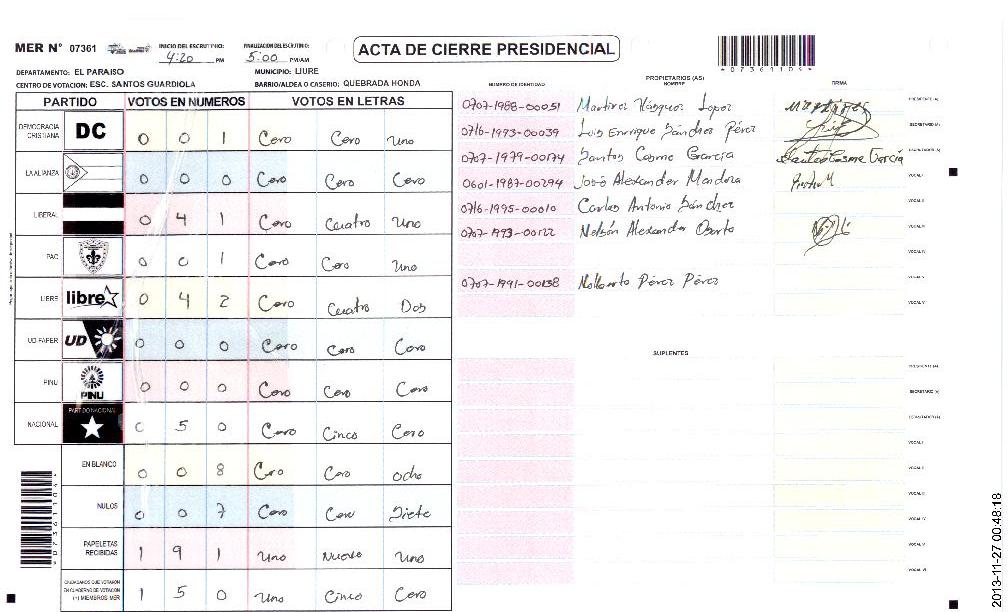 MER N° 07361
INICIO DEL ESCRUTINIO: 4:20 PM
FINALIZACION DEL ESCRUTINIO: 5:00 PM/AM
ACTA DE CIERRE PRESIDENCIAL
*07361109*
DEPARTAMENTO: EL PARAISO
MUNICIPIO: LIURE
CENTRO DE VOTACION: ESC. SANTOS GUARDIOLA
BARRIO/ALDEA O CASERIO: QUEBRADA HONDA
PARTIDO VOTOS EN NUMEROS VOTOS EN LETRAS
DEMOCRACIA CRISTIANA DC 0 0 1 Cero Cero Uno
LA ALIANZA 0 0 0 Cero Cero Cero
LIBERAL 0 4 1 Cero Cuatro Uno
PAC 0 0 1 Cero Cero Uno
LIBRE libre 0 4 2 Cero Cuatro Dos
UD-FAPER UD 0 0 0 Cero Cero Cero
PINU PINU 0 0 0 Cero Cero Cero
NACIONAL PARTIDO NACIONAL 0 5 0 Cero Cinco Cero
EN BLANCO 0 0 8 Cero Cero Ocho
NULOS 0 0 7 Cero Cero Siete
PAPELETAS RECIBIDAS 1 9 1 Uno Nueve Uno
CIUDADANOS QUE VOTARON EN CUADERNO DE VOTACION (+) MIEMBROS MER 1 5 0 Uno Cinco Cero
PROPIETARIOS (AS)
NUMERO DE IDENTIDAD NOMBRE FIRMA
0707-1988-00051 Martinez Vásquez Lopez PRESIDENTE (A)
0716-1993-00039 Luis Enrique Sánchez Pérez SECRETARIO (A)
0707-1979-00174 Santos Cosme García Santos Cosme García ESCRUTADOR (A)
0601-1987-00294 José Alexander Mendoza VOCAL I
0716-1995-00010 Carlos Antonio Sánchez VOCAL II
0707-1993-00122 Nelson Alexander VOCAL III
VOCAL IV
0707-1991-00138 Pérez Pérez VOCAL V
VOCAL VI
SUPLENTES
PRESIDENTE (A)
SECRETARIO (A)
ESCRUTADOR (A)
VOCAL I
VOCAL II
VOCAL III
VOCAL IV
VOCAL V
VOCAL VI
2013-11-27 00:48:18